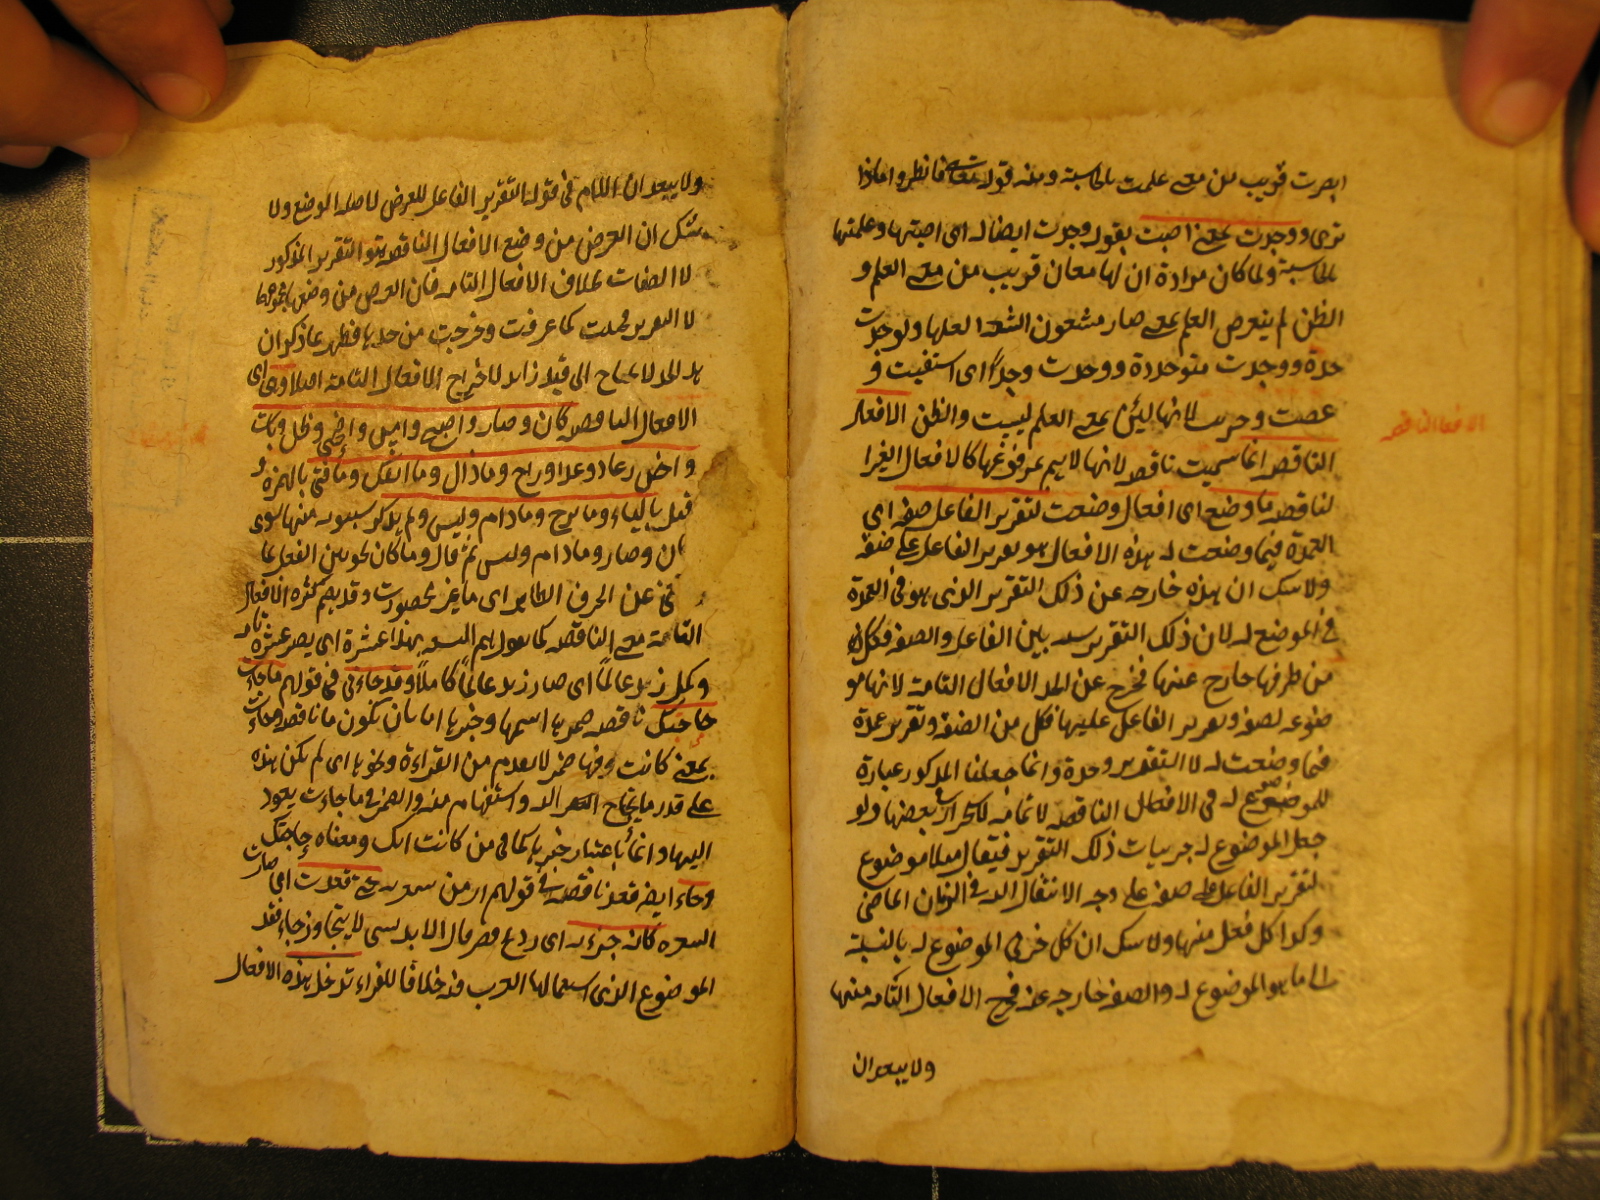 ابصرت قريب من معنى علمت بالحاسبة ومنه قوله تعالى فانظروا ماذا
ترى ووجدت بمعنى اصبت يقول وجدت ايضا له اى اصبتها وعلمتها
بالحاسبة ولما كان مراده ان لها معان قريب من معنى العلم و
الظن لم يتعرض العلم بمعنى صار مشعوق الشفة العليا ولوجدت
جدة ووجدت متوجدة ووجدت وجدا اى استغنيت و
غضبت وحزنت لانها ليس بمعنى العلم ليست والظن الافعال
الافعال الناقصة
الناقصة انما سميت ناقصة لانها لا يتم بمرفوعها كالافعال الغير
الناقصة ما وضع اى افعال وضعت لتقرير الفاعل صفة اى
العمدة فيما وضعت له هذه الافعال هو تقرير الفاعل على صفة
ولا شك ان هذه خارجة عن ذلك التقرير الذى هو فى العمدة
فى الموضع له لان ذلك التقرير نسبة بين الفاعل والصفة فكل
من طرفها خارج عنها فخرج عن الحد الافعال التامة لانها مو
ضوعة لصفة وتقرير الفاعل عليها فكل من الصفة وتقرير عمدة
فيما وضعت له لا التقرير وحده وانما جعلنا المذكور عبارة
للموضوع له فى الافعال الناقصة لاتمامه بعضها ولو
جعل الموضوع له جزئيات ذلك التقرير فيقال مثلا موضوع
لتقرير الفاعل على صفة على وجه الانتقال اليه فى الزمان الماضى
وكذا كل فعل منها ولا شك ان كل جزئى الموضوع له بالنسبة
الى ما هو الموضوع له والصفة خارجة عنه فخرج الافعال التامة منها
ولا يبعد ان
ولا يبعد ان اللام فى قوله لتقرير الفاعل للغرض لا صلة الوضع ولا
شك ان الغرض من وضع الافعال الناقصة هو التقرير المذكور
لا الصفات بخلاف الافعال التامة فان الغرض من وضعها مجموعها
لا التقرير فحسب كما عرفت وخرجت من حدها فظهر بما ذكر ان
هذا الحد لا يحتاج الى قيد زائد لاخراج الافعال التامة اصلا وهى اى
الافعال الناقصة كان وصار واصبح وامسى واضحى وظل وبات
واض وعاد وغدا وراح وما زال وما انفك وما فتئ بالهمزة و
قيل بالياء وما برح وما دام وليس ولم يذكر سيبويه منها سوى
كان وصار وما دام وليس ثم قال وما كان نحوهن من الفعل مما
لا يستغنى عن الخبر الظاهر اى ما غير محصورات وقد يضم كثيرة الافعال
التامة معنى الناقصة كما تقول يتم التسعة بهذا عشرة اى يصير عشرة تامة
وكمل زيد عالما اى صار زيد عالما كاملا وقد جاء فى قولهم ما جاءت
حاجتك ناقصة ضميرها اسمها وخبرها اما بان يكون ما ناقصة وجاءت
بمعنى كانت وفيها ضمير لما تقدم من القراءة ونحوها اى لم تكن هذه
على قدر ما يحتاج اليه واستفهام منه والضمير فى ما جاءت يعود
اليها وانما باعتبار خبرها كما فى من كانت امك ومعناه حاجتك صارت
وجاء ايضا قعد ناقصة فى قولهم حتى قعدت اى
كانه حربة اى رمح قال الاندلسى لا يتجاوز جاء وقعد
الموضوع الذى استعملها العرب فيه خلافا للفراء تدخل هذه الافعال